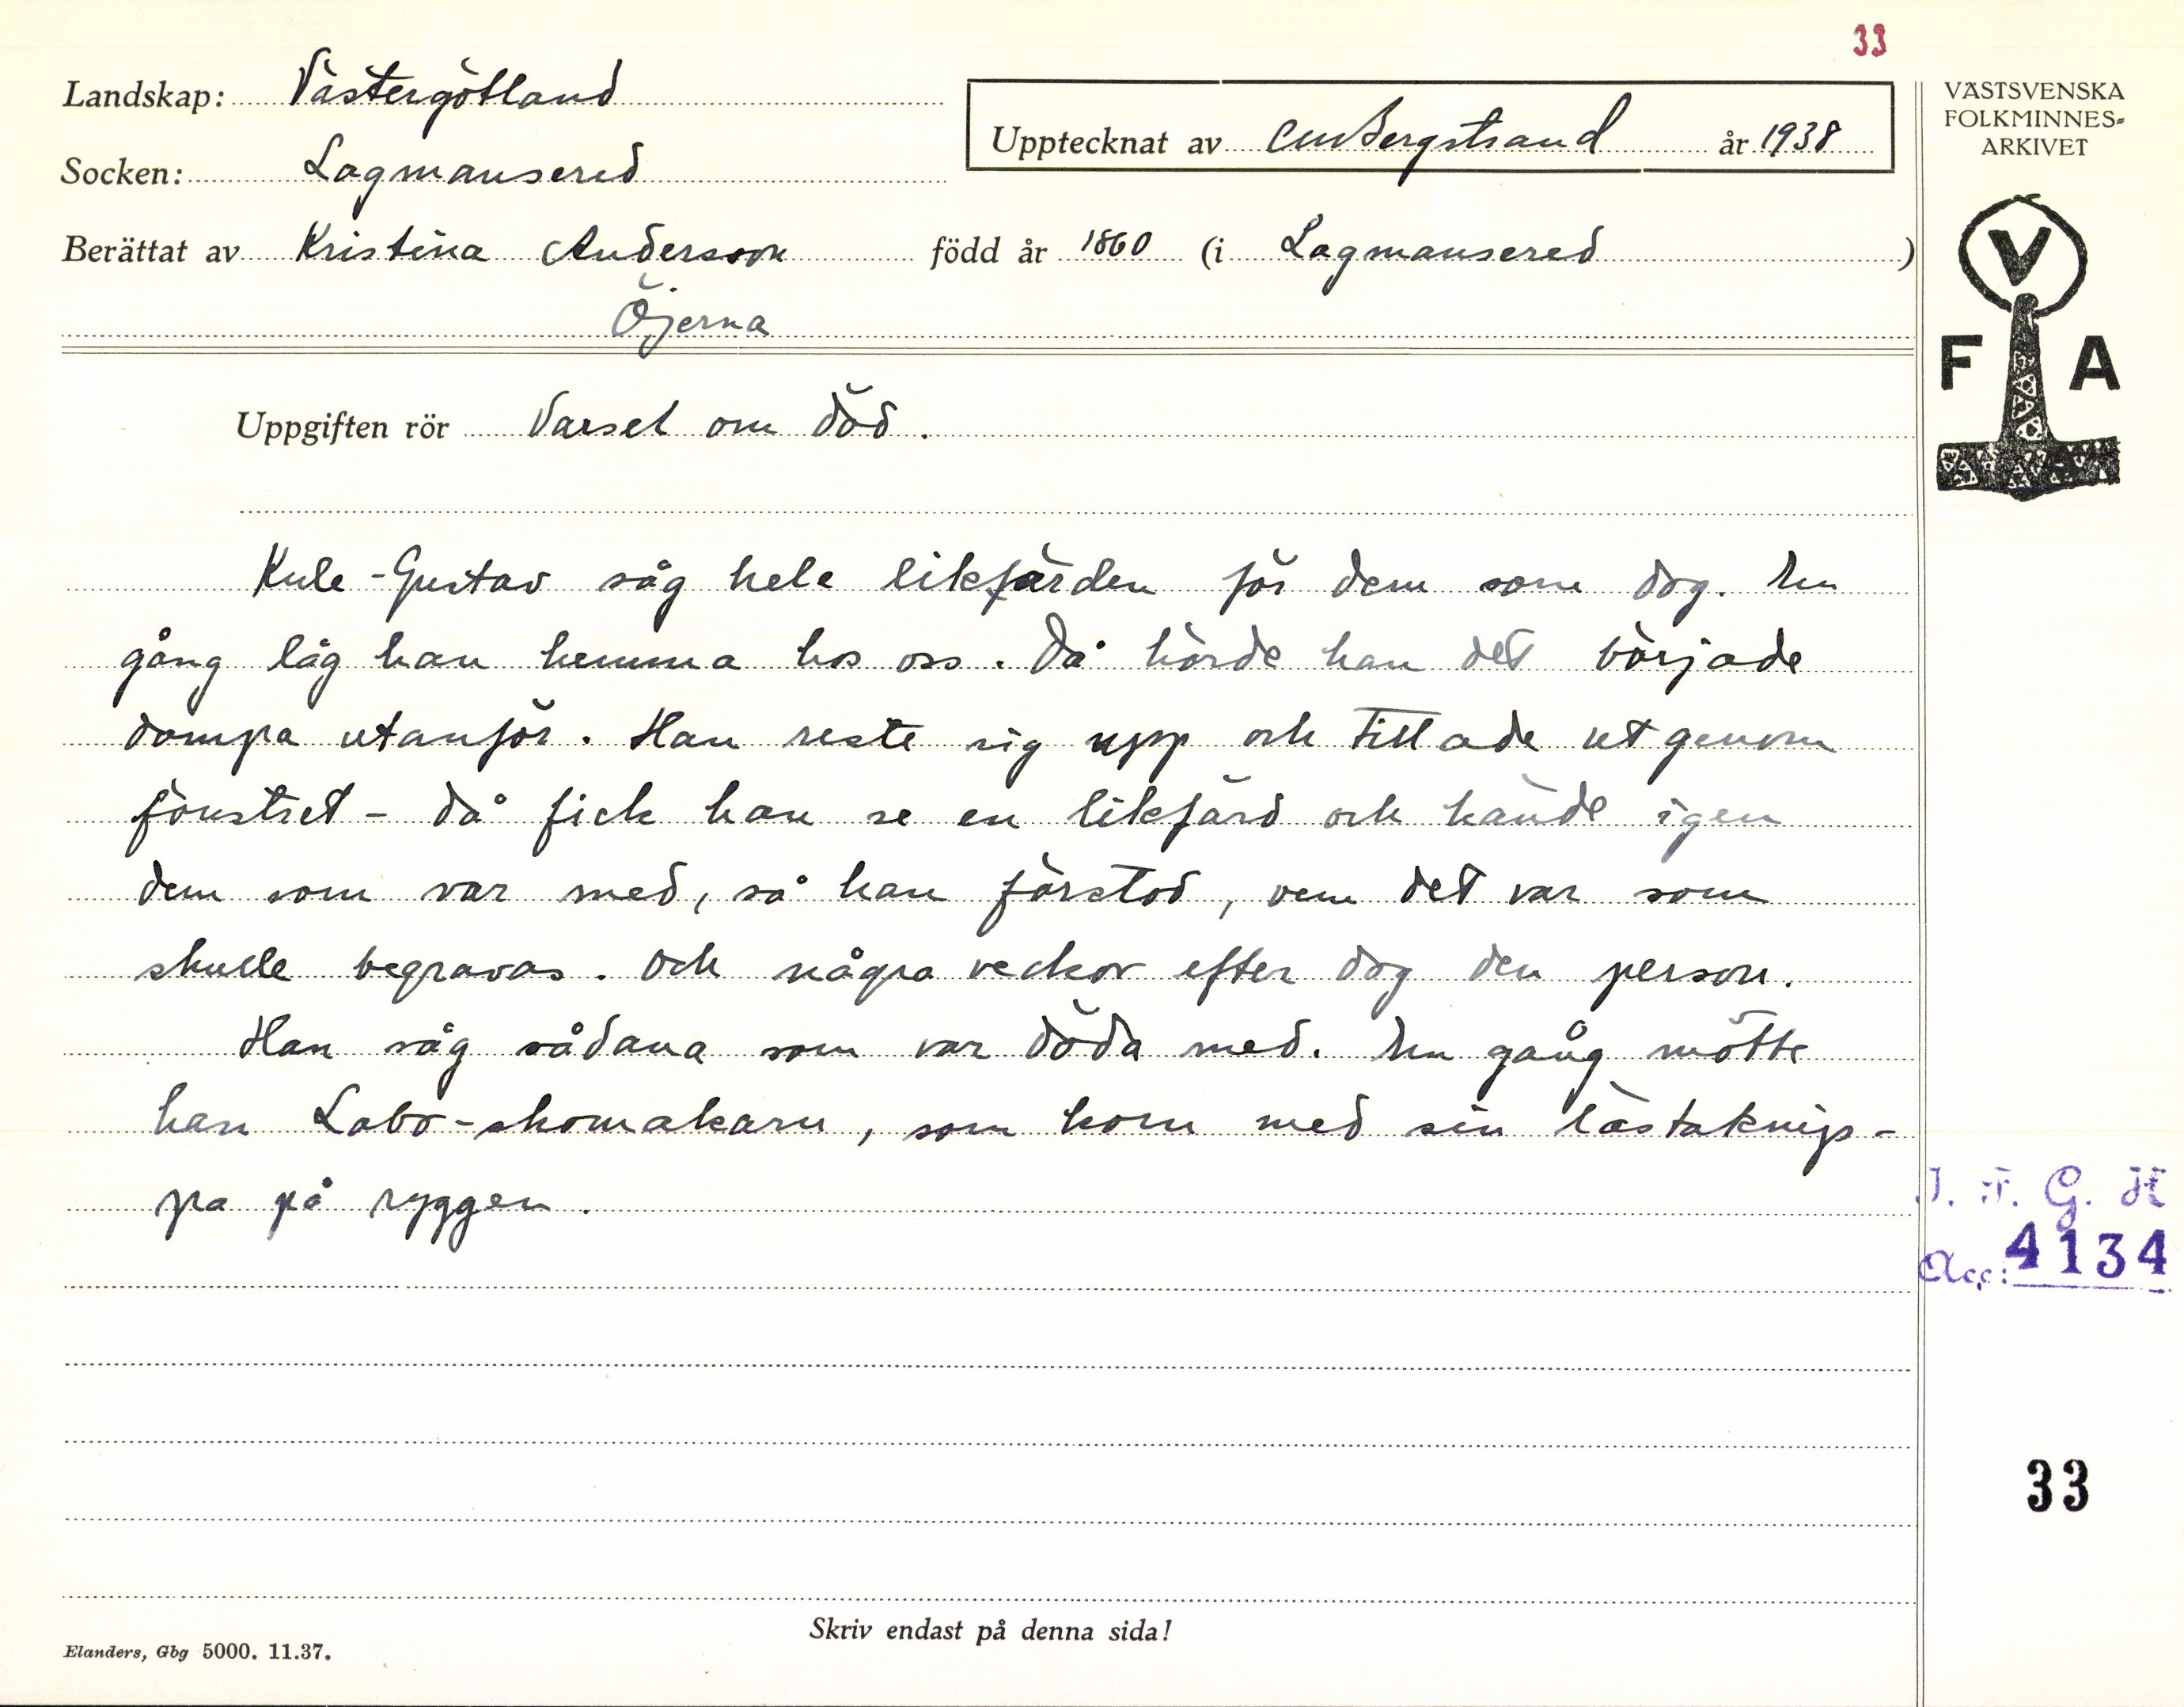 33
Landskap: Västergötland
Socken: Lagmansered
Upptecknat av CM Bergstrand år 1938
Berättat av Kristina Andersson född år 1860 (i Lagmansered)
Öjerna
VÄSTSVENSKA
FOLKMINNES-
ARKIVET
V
F A
Uppgiften rör Varsel om död.
Kule-Gustav såg hele likfärden för dem som dog. En
gång låg han hemma hos oss. Då hörde han det började
dompa utanför. Han reste sig upp och tittade ut genom
fönstret - då fick han se en likfärd och kände igen
dem som var med, så han förstod, vem det var som
skulle begravas. Och några veckor efter dog den person.
Han såg sådana som var döda med. En gång mötte
han Labo-skomakarn, som kom med sin lästaknip-
pa på ryggen.
I. F. G. H
Acc: 4134
33
Skriv endast på denna sida!
Elanders, Gbg 5000. 11.37.